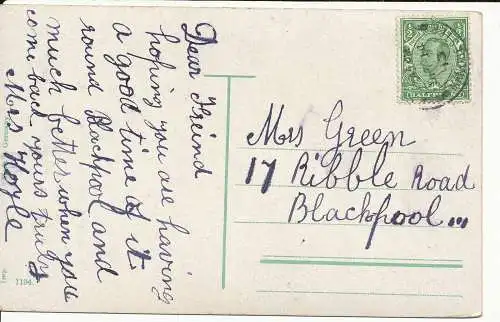 Dear Freind
hoping you are having
a good time of it
round Blackpool and
much better when you
come back yours truly
Mrs Hoyle
Mrs Green
17 Ribble Road
Blackpool
HALFPENNY
1194.